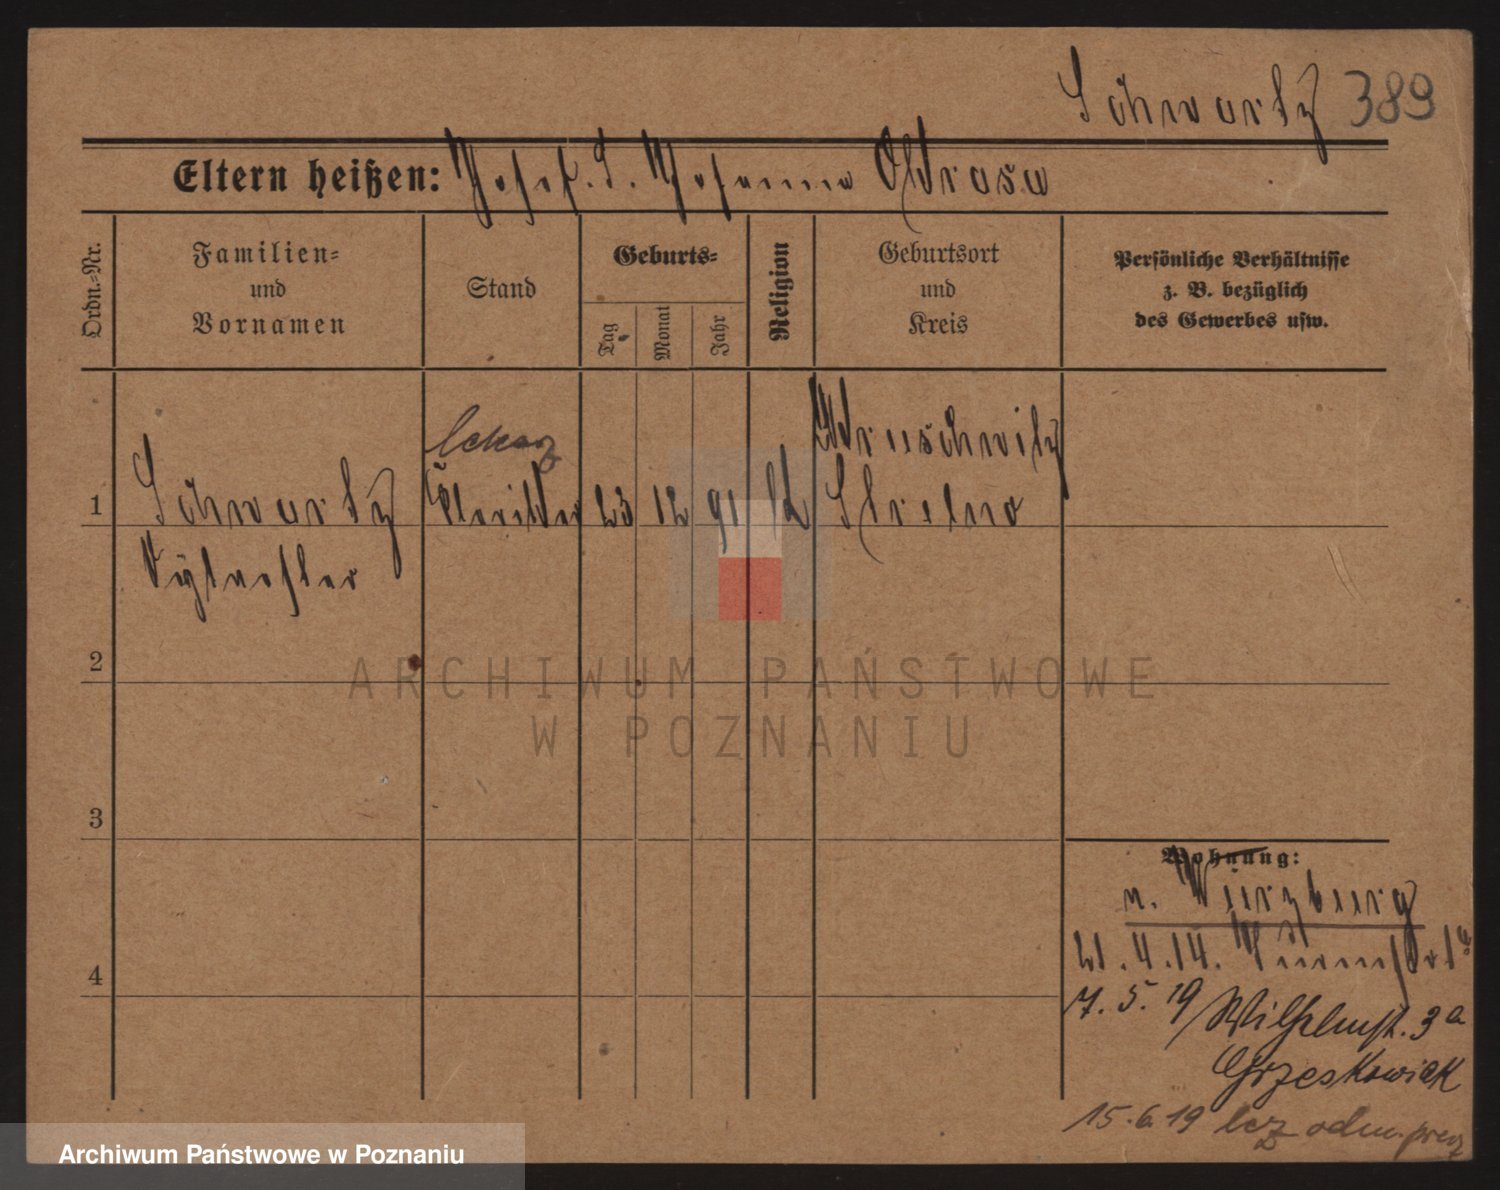 Schwartz 389
Eltern heißen: Josef. S. Johanna
Ordn.-Nr.
Familien-
und
Vornamen
Stand
Geburts-
Tag
Monat
Jahr
Religion
Geburtsort
und
Kreis
Persönliche Verhältnisse
z. B. bezüglich
des Gewerbes usw.
lekarz
Kruschwitz
1 Schwartz 23 12 91 Strelno
Sylvester
2
ARCHIWUM PAŃSTWOWE
W POZNANIU
3
Wohnung:
n. Würzburg
21. 4. 14.
7. 5. 19 Wilhelmst. 3a
Grzeskowiak
15. 6. 19
4
Archiwum Państwowe w Poznaniu